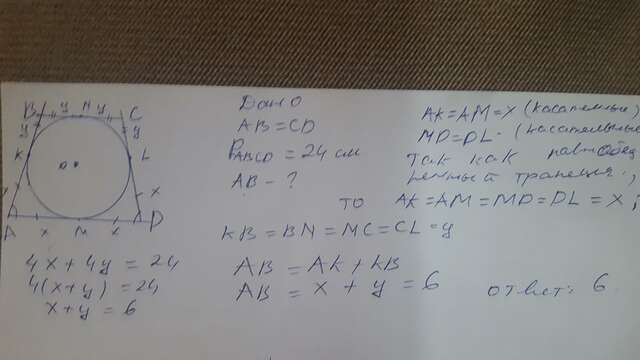 B y N y C
y y
K O L
x x
A x M x D
4x + 4y = 24
4(x+y) = 24
x+y = 6
Дано
AB = CD
PABCD = 24 см
AB - ?
AK = AM = x (касательные)
MD = DL - (касательные
так как равнобед
ренный трапеция,
то AK = AM = MD = DL = x;
KB = BN = MC = CL = y
AB = AK + KB
AB = x + y = 6
ответ: 6